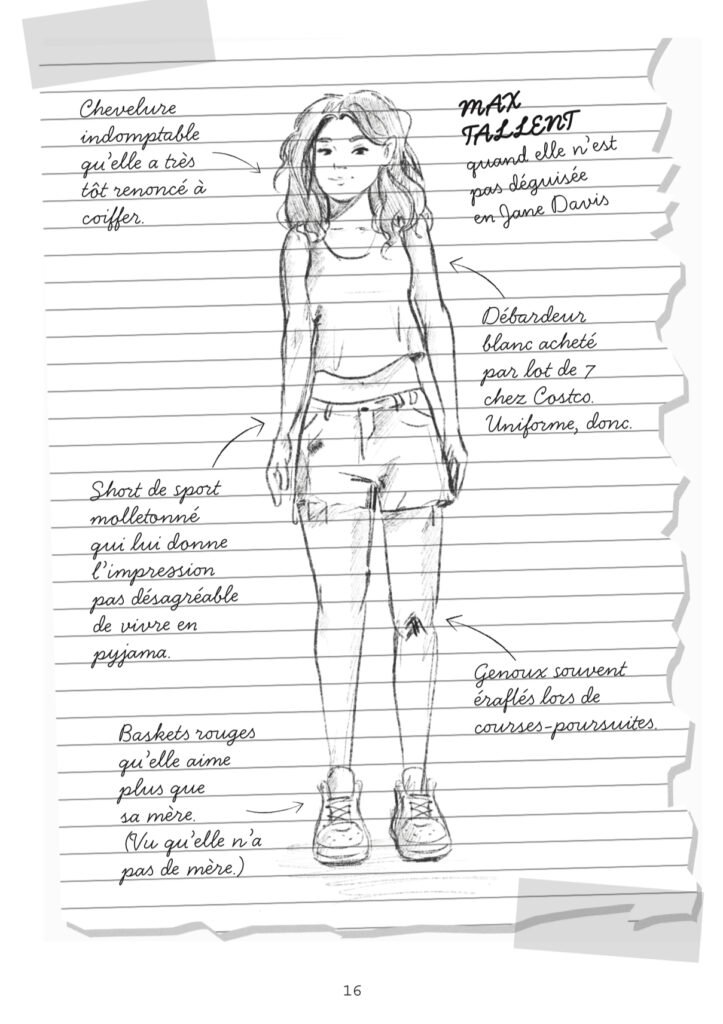 Chevelure
indomptable
qu'elle a très
tôt renoncé à
coiffer.
MAX
TALLENT
quand elle n'est
pas déguisée
en Jane Davis
Débardeur
blanc acheté
par lot de 7
chez Costco.
Uniforme, donc.
Short de sport
molletonné
qui lui donne
l'impression
pas désagréable
de vivre en
pyjama.
Genoux souvent
éraflés lors de
courses-poursuites.
Baskets rouges
qu'elle aime
plus que
sa mère.
(Vu qu'elle n'a
pas de mère.)
16